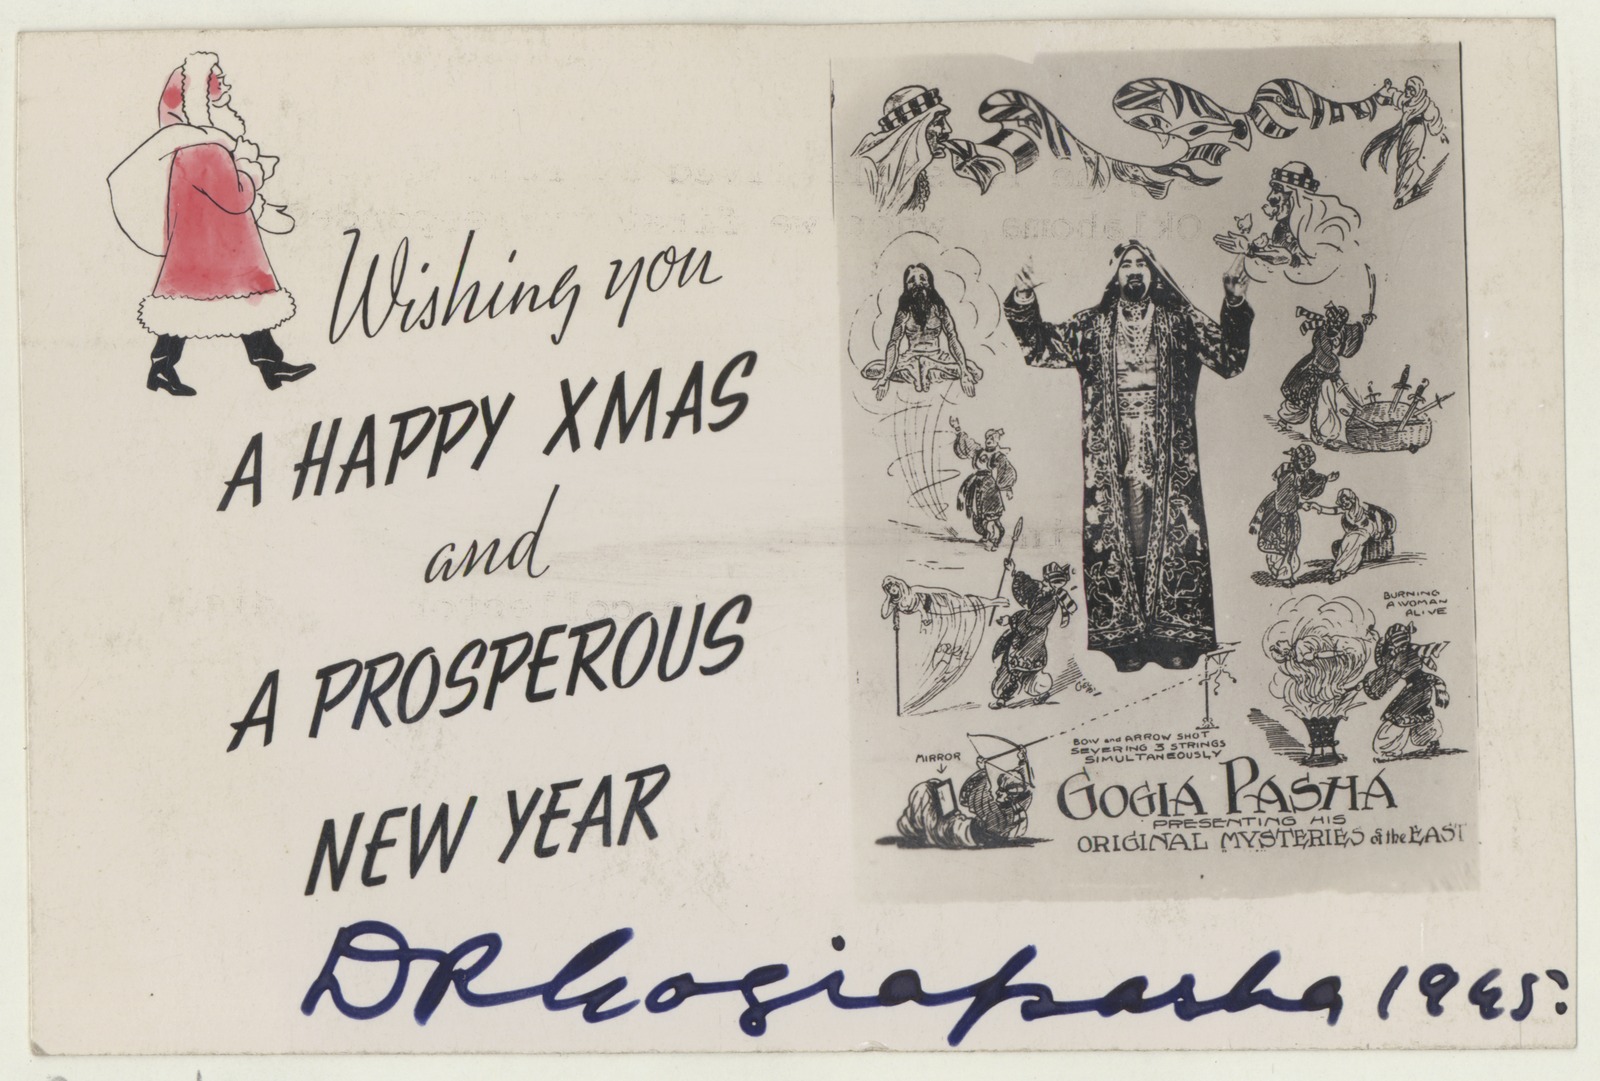 Wishing you
A HAPPY XMAS
and
A PROSPEROUS
NEW YEAR
DR Gogiapasha 1965
BURNING
A WOMAN
ALIVE
BOW and ARROW SHOT
SEVERING 3 STRINGS
SIMULTANEOUSLY
MIRROR
GOGIA PASHA
PRESENTING HIS
ORIGINAL MYSTERIES of the EAST